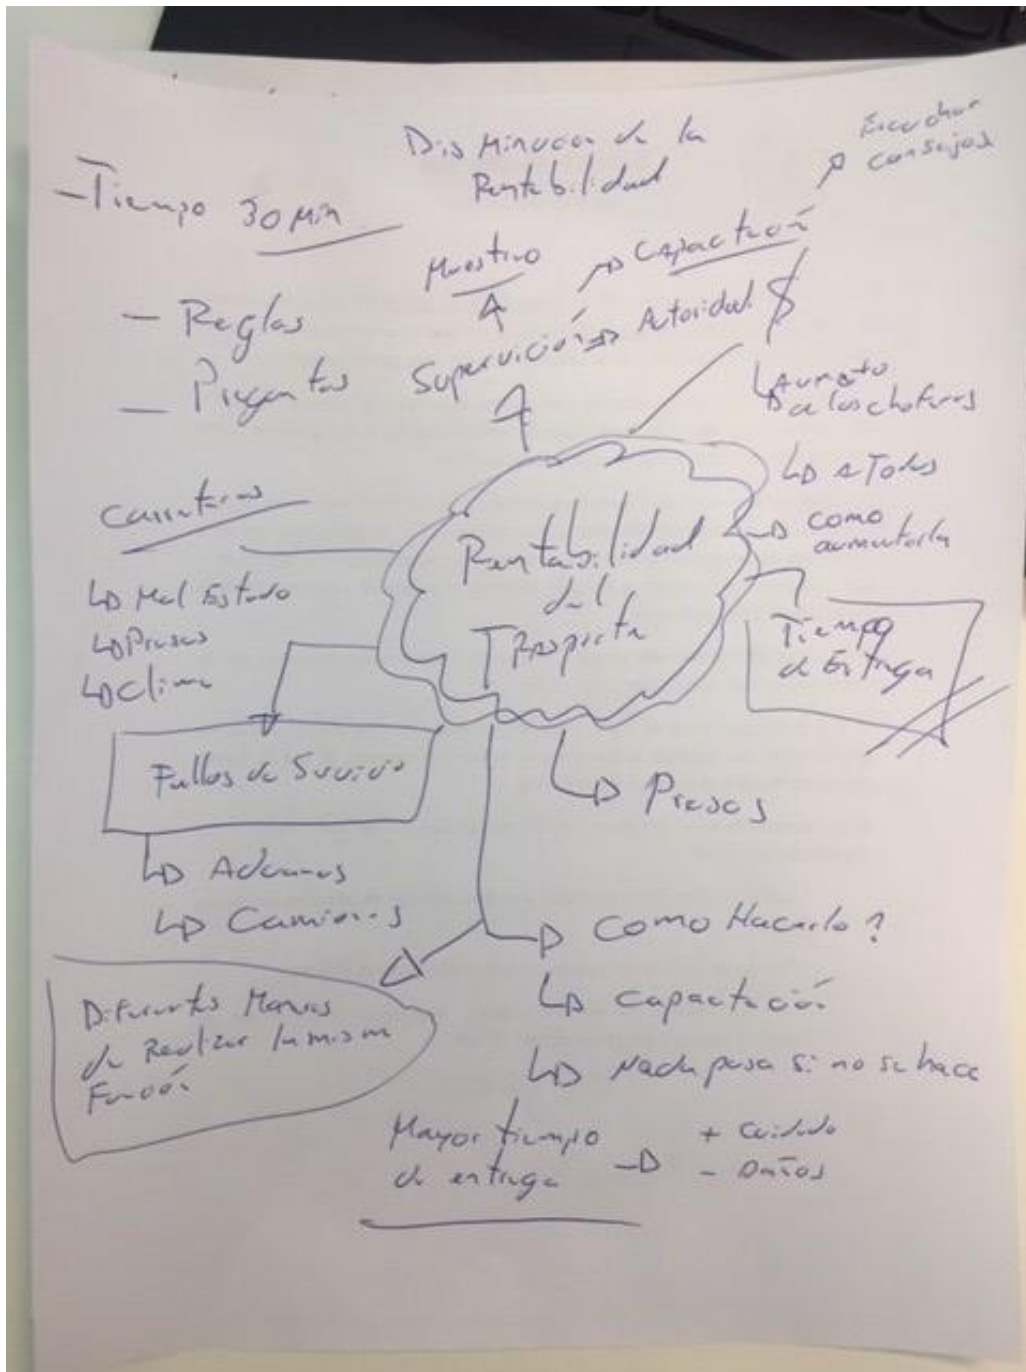 Disminucon de la
Rentabilidad
Escuchar
consejos
- Tiempo 30 Min
Muestreo
Capactacón
- Reglas
Supervición
Autoridad
$
- Pregentas
Aumento
a los choferes
a Todos
como
aumentarla
Carreteras
Mal Estado
Presas
Clima
Rentabilidad
del
Trasporte
Tiempo
de Entrega
Fallos de Servicio
Aduanas
Camiones
Presas
Como Hacerlo?
Capactación
Nada pasa si no se hace
Diferentes Maneras
de Realizar la misma
Función
Mayor tiempo
de entrega
+ Cuidado
- Daños